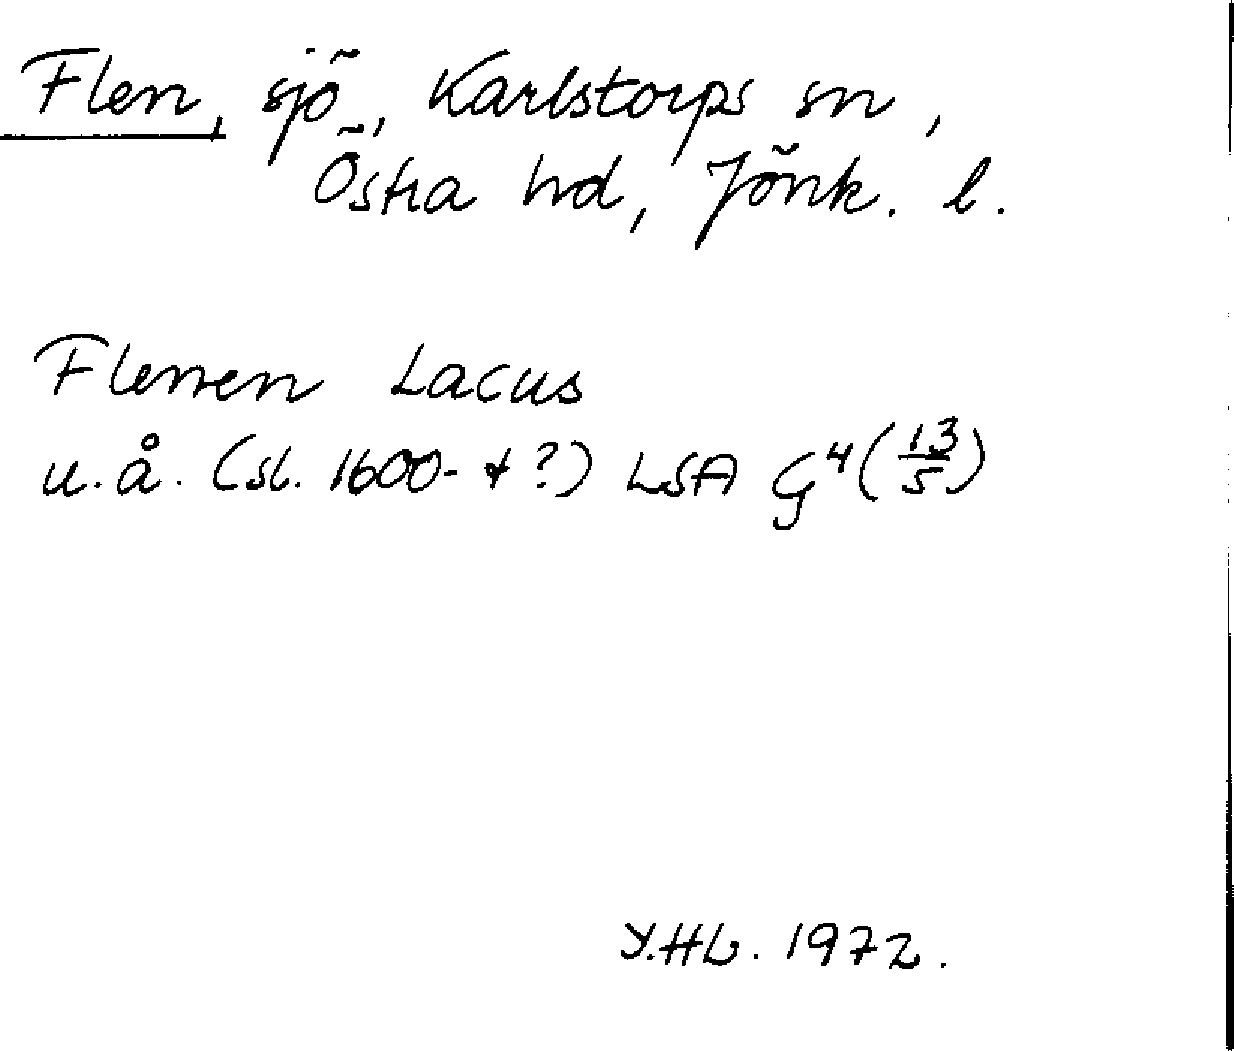 Flen, sjö, Karlstorps sn,
Östra hd, Jönk. l.
Flenen Lacus
u.å. (sl. 1600-t ?) LSA G4 (13/5)
Y.HL. 1972.